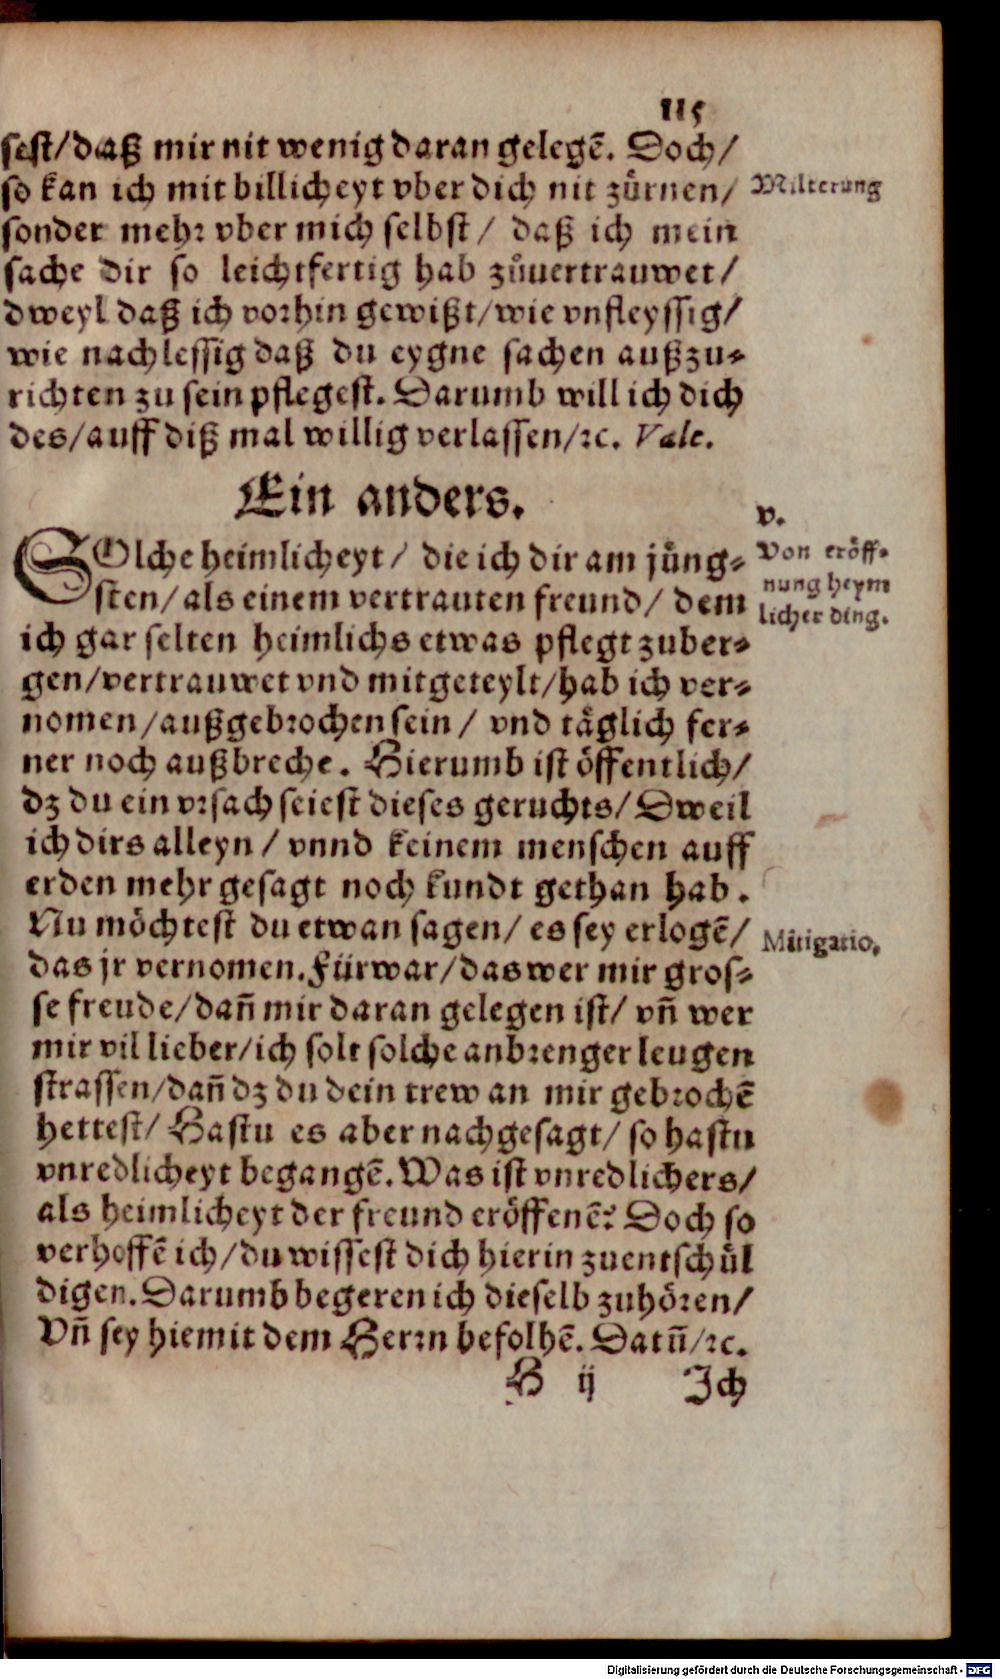 115
sest/daß mir nit wenig daran gelegẽ. Doch/
so kan ich mit billicheyt vber dich nit zürnen/
Milterung
sonder mehr vber mich selbst/ daß ich mein
sache dir so leichtfertig hab zůuertrauwet/
dweyl daß ich vorhin gewißt/wie vnfleyssig/
wie nachlessig daß du eygne sachen außzu-
richten zu sein pflegest. Darumb will ich dich
des/auff diß mal willig verlassen/ꝛc. Vale.
Ein anders.
v.
Von eröff-
nung heym
licher ding.
SOlche heimlicheyt/ die ich dir am jüng-
sten/als einem vertrauten freund/ dem
ich gar selten heimlichs etwas pflegt zuber-
gen/vertrauwet vnd mitgeteylt/hab ich ver-
nomen/außgebrochen sein/ vnd täglich fer-
ner noch außbreche. Hierumb ist öffentlich/
dz du ein vrsach seiest dieses geruchts/ Dweil
ich dirs alleyn/ vnnd keinem menschen auff
erden mehr gesagt noch kundt gethan hab.
Nu möchtest du etwan sagen/ es sey erlogẽ/
Mitigatio.
das jr vernomen. Fürwar/das wer mir gros-
se freude/dañ mir daran gelegen ist/ vñ wer
mir vil lieber/ich solt solche anbrenger leugen
strassen/dañ dz du dein trew an mir gebrochẽ
hettest/ Hastu es aber nachgesagt/ so hastu
vnredlicheyt begangẽ. Was ist vnredlichers/
als heimlicheyt der freund eröffenẽ? Doch so
verhoffẽ ich/du wissest dich hierin zuentschül
digen. Darumb begeren ich dieselb zuhören/
Vñ sey hiemit dem Herrn befolhẽ. Datũ/ꝛc.
H ij Ich
Digitalisierung gefördert durch die Deutsche Forschungsgemeinschaft - DFG